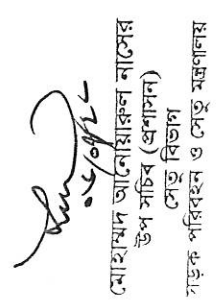 ০৮/০৫/২২
মোহাম্মদ আনোয়ারুল নাসের
উপ সচিব (প্রশাসন)
সেতু বিভাগ
সড়ক পরিবহন ও সেতু মন্ত্রণালয়